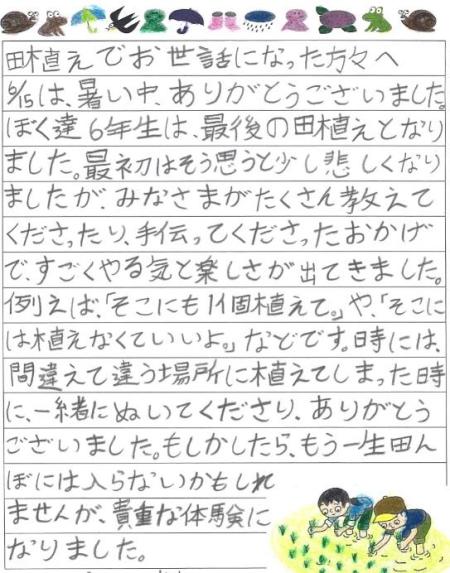 田植えでお世話になった方々へ
6/15は、暑い中、ありがとうございました。
ぼく達6年生は、最後の田植えとなり
ました。最初はそう思うと少し悲しくなり
ましたが、みなさまがたくさん教えて
くださったり、手伝ってくださったおかげ
で、すごくやる気と楽しさが出てきました。
例えば、「そこにも1個植えて。」や、「そこに
は植えなくていいよ。」などです。時には、
間違えて違う場所に植えてしまった時
に、一緒にぬいてくださり、ありがとう
ございました。もしかしたら、もう一生田ん
ぼには入らないかもしれ
ませんが、貴重な体験に
なりました。